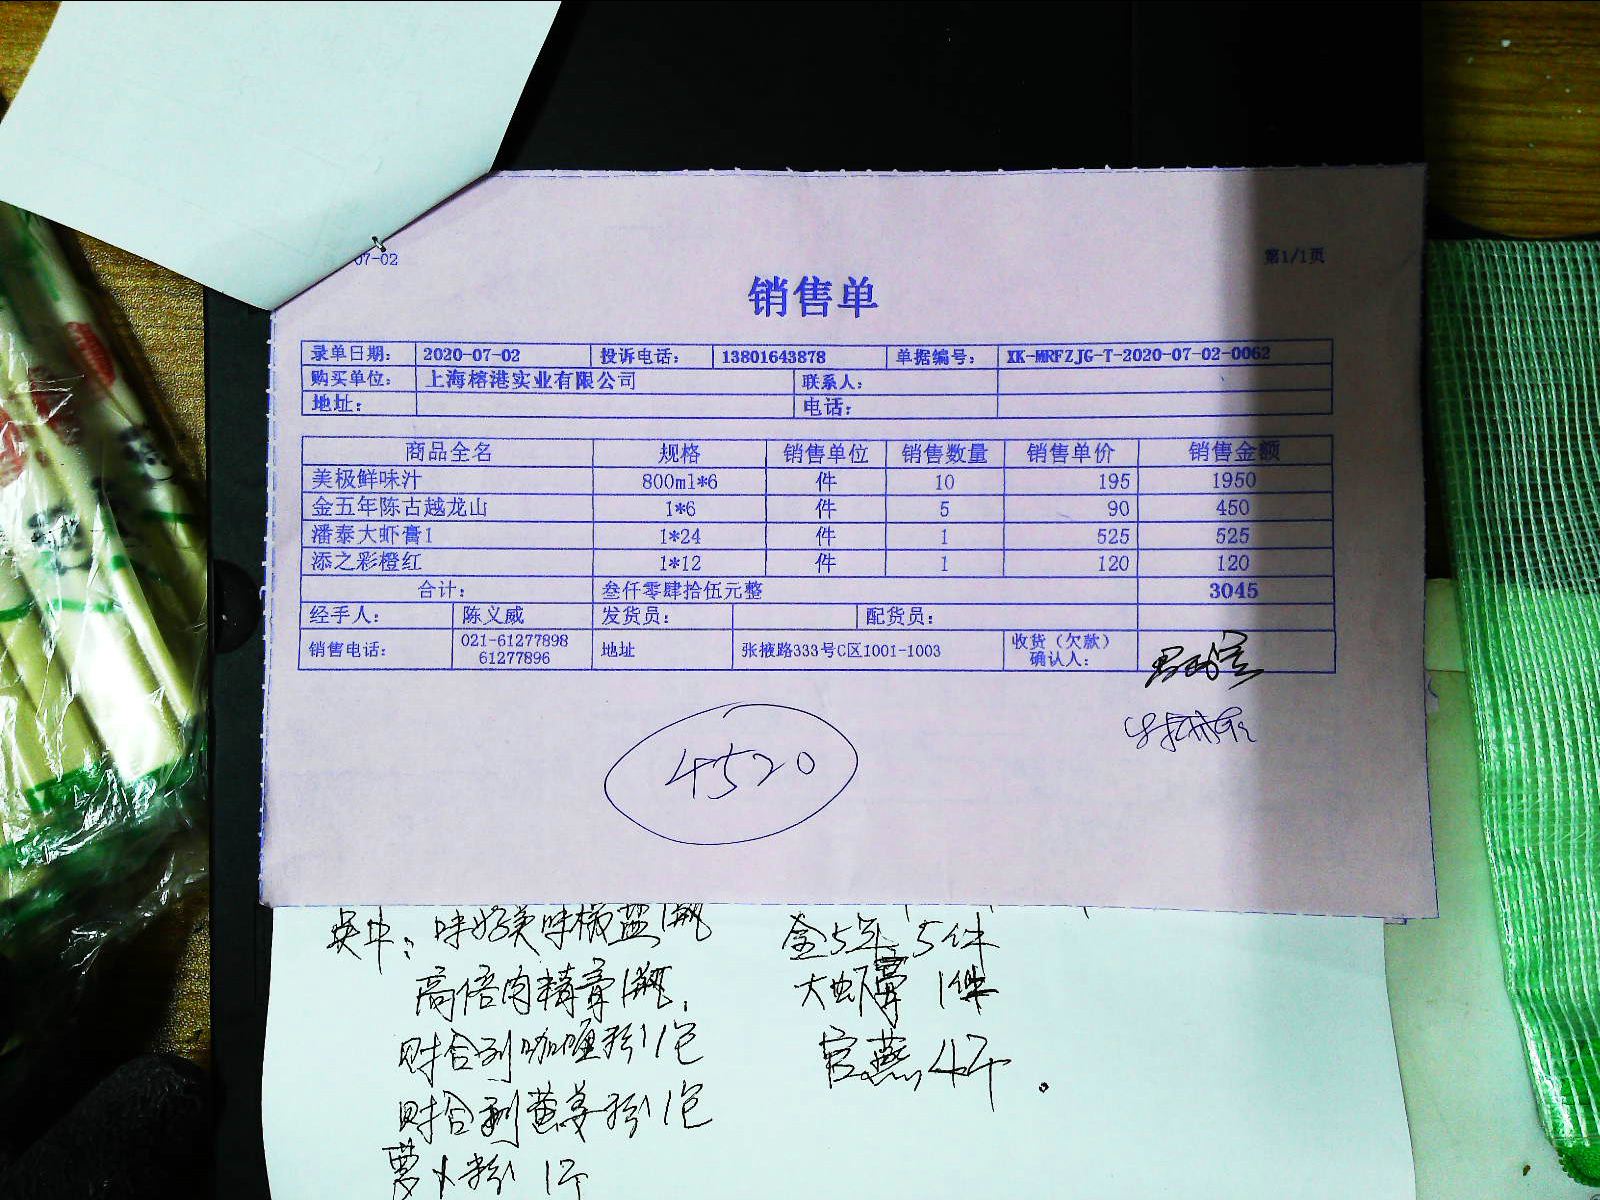 07-02
第1/1页
销售单
录单日期： 2020-07-02 投诉电话： 13801643878 单据编号： XK-MRFZJG-T-2020-07-02-0062
购买单位： 上海榕港实业有限公司 联系人：
地址： 电话：
商品全名 规格 销售单位 销售数量 销售单价 销售金额
美极鲜味汁 800ml*6 件 10 195 1950
金五年陈古越龙山 1*6 件 5 90 450
潘泰大虾膏1 1*24 件 1 525 525
添之彩橙红 1*12 件 1 120 120
合计： 叁仟零肆拾伍元整 3045
经手人： 陈义威 发货员： 配货员：
销售电话： 021-61277898 61277896 地址 张掖路333号C区1001-1003 收货（欠款）确认人：
4520
味好美味椒盐1瓶 金5年 5件
高倍肉精膏1瓶, 大虾膏 1件
咖喱粉1包 官燕 4个。
黄姜粉1包
萝卜粉 1个